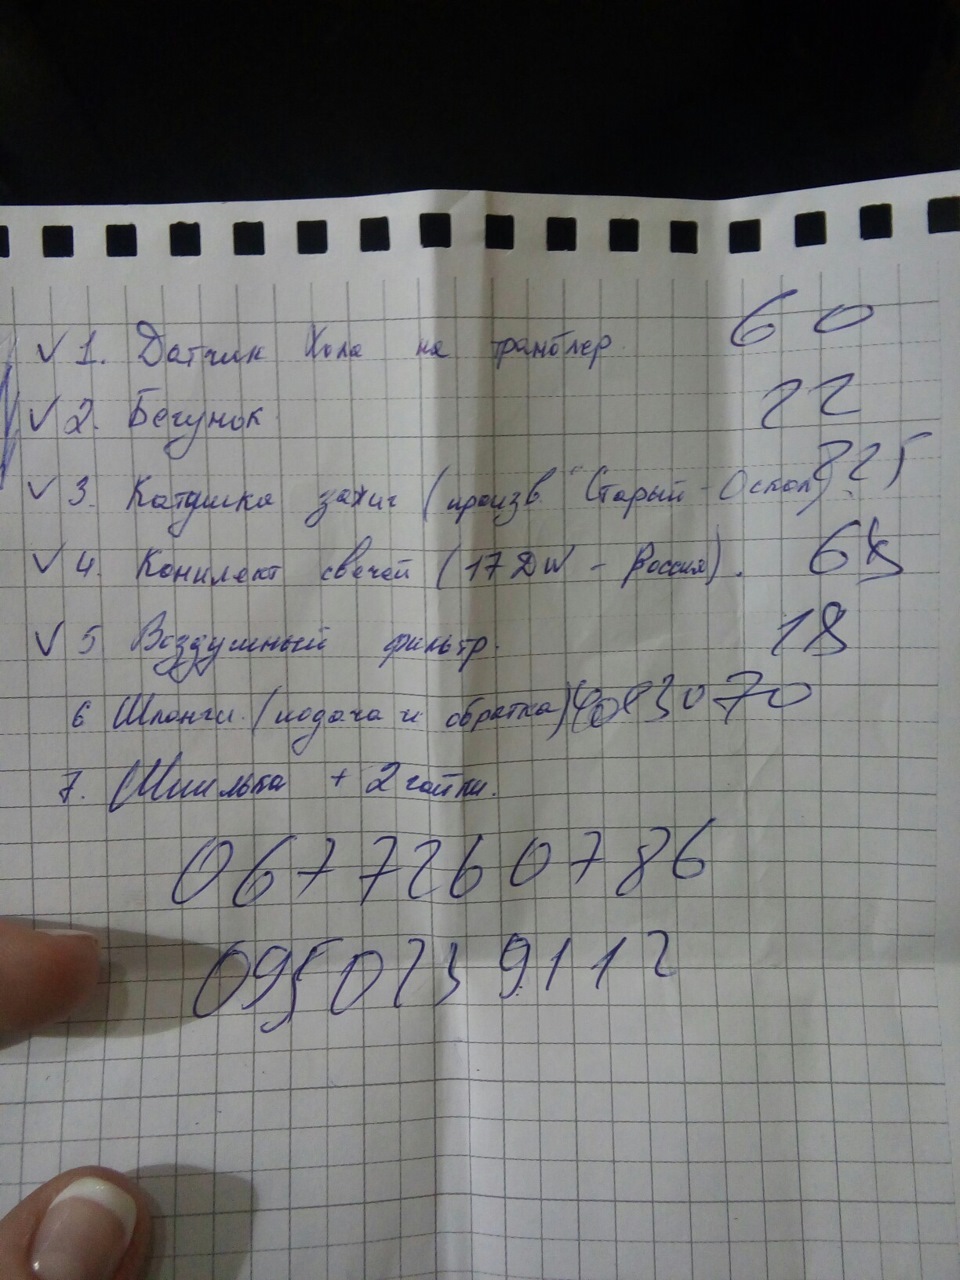 ✓ 1. Датчик Хола на трамблер. 60
✓ 2. Бегунок 22
✓ 3. Катушка зажиг (произв. "Старый-Оскол)
✓ 4. Комплект свечей (17 DW - Россия).
✓ 5 Воздушный фильтр. 18
6 Шланги. (подача и обратка) 70
7. Шпилька + 2 гайки.
0677260786
0950239112